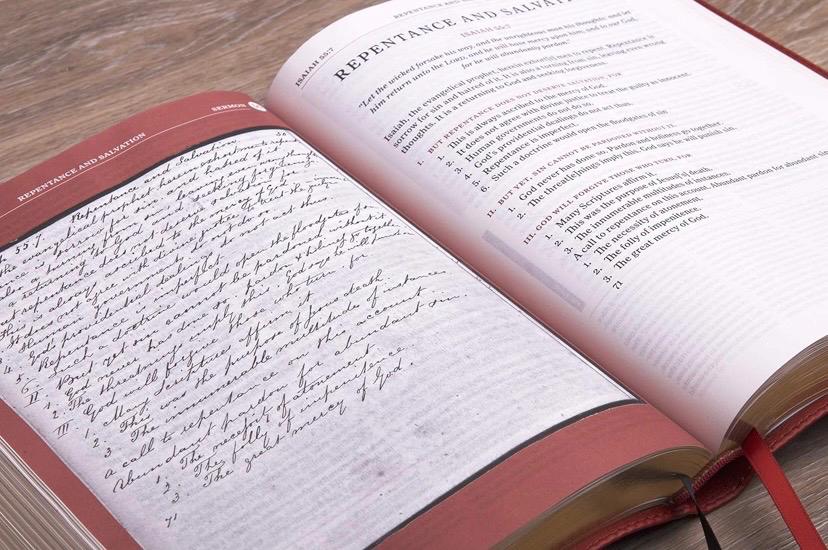 REPENTANCE AND SALVATION
SERMON
Repentance and Salvation
55.7.
evangelical prophet herein exhorts men to
for sin and hatred of it
a turning from sin and leaving wrong thoughts
a returning to God and
repentance does not deserve salvation for
This is always ascribed to the mercy of God
It does not agree with divine justice
3. Human governments do not do so
4. God's providential dealings do not act thus
5. Repentance is imperfect
6. Such a doctrine would open the floodgates
II. But yet sin cannot be pardoned without it
1. God never has done so. Pardon & holiness go together
2. The threatenings imply this. God says he will punish
III. God will forgive those who turn, for
1. Many Scriptures affirm it
2. This was the purpose of Jesus death
3. The innumerable multitudes of instances
A call to repentance on this account
Abundant pardon for abundant sin.
1. The necessity of atonement
2. The folly of impenitence.
3. The great mercy of God.
71
ISAIAH 55:7
REPENTANCE AND
REPENTANCE AND
ISAIAH 55:7
"Let the wicked forsake his way, and the unrighteous man his thoughts: and let
him return unto the LORD, and he will have mercy upon him; and to our God,
for he will abundantly pardon."
Isaiah, the evangelical prophet, herein men to repent. Repentance is
sorrow for sin and hatred of it. It is also a turning from sin, leaving even wrong
thoughts. It is a returning to God and seeking
I. BUT REPENTANCE DOES NOT DESERVE SALVATION, FOR
1. This is always ascribed to the mercy of God.
2. It does not agree with divine justice to treat the guilty as innocent.
3. Human governments do not do so.
4. God's providential dealings do not act thus.
5. Repentance is imperfect.
6. Such a doctrine would open the floodgates of sin
II. BUT YET, SIN CANNOT BE PARDONED WITHOUT IT
1. God never has done so. Pardon and holiness go together.
2. The threatenings imply this. God says he will punish sin.
III. GOD WILL FORGIVE THOSE WHO TURN, FOR
1. Many Scriptures affirm it.
2. This was the purpose of Jesus' death.
3. The innumerable multitudes of instances.
A call to repentance on this account. Abundant pardon for abundant
1. The necessity of atonement.
2. The folly of impenitence.
3. The great mercy of God.
71